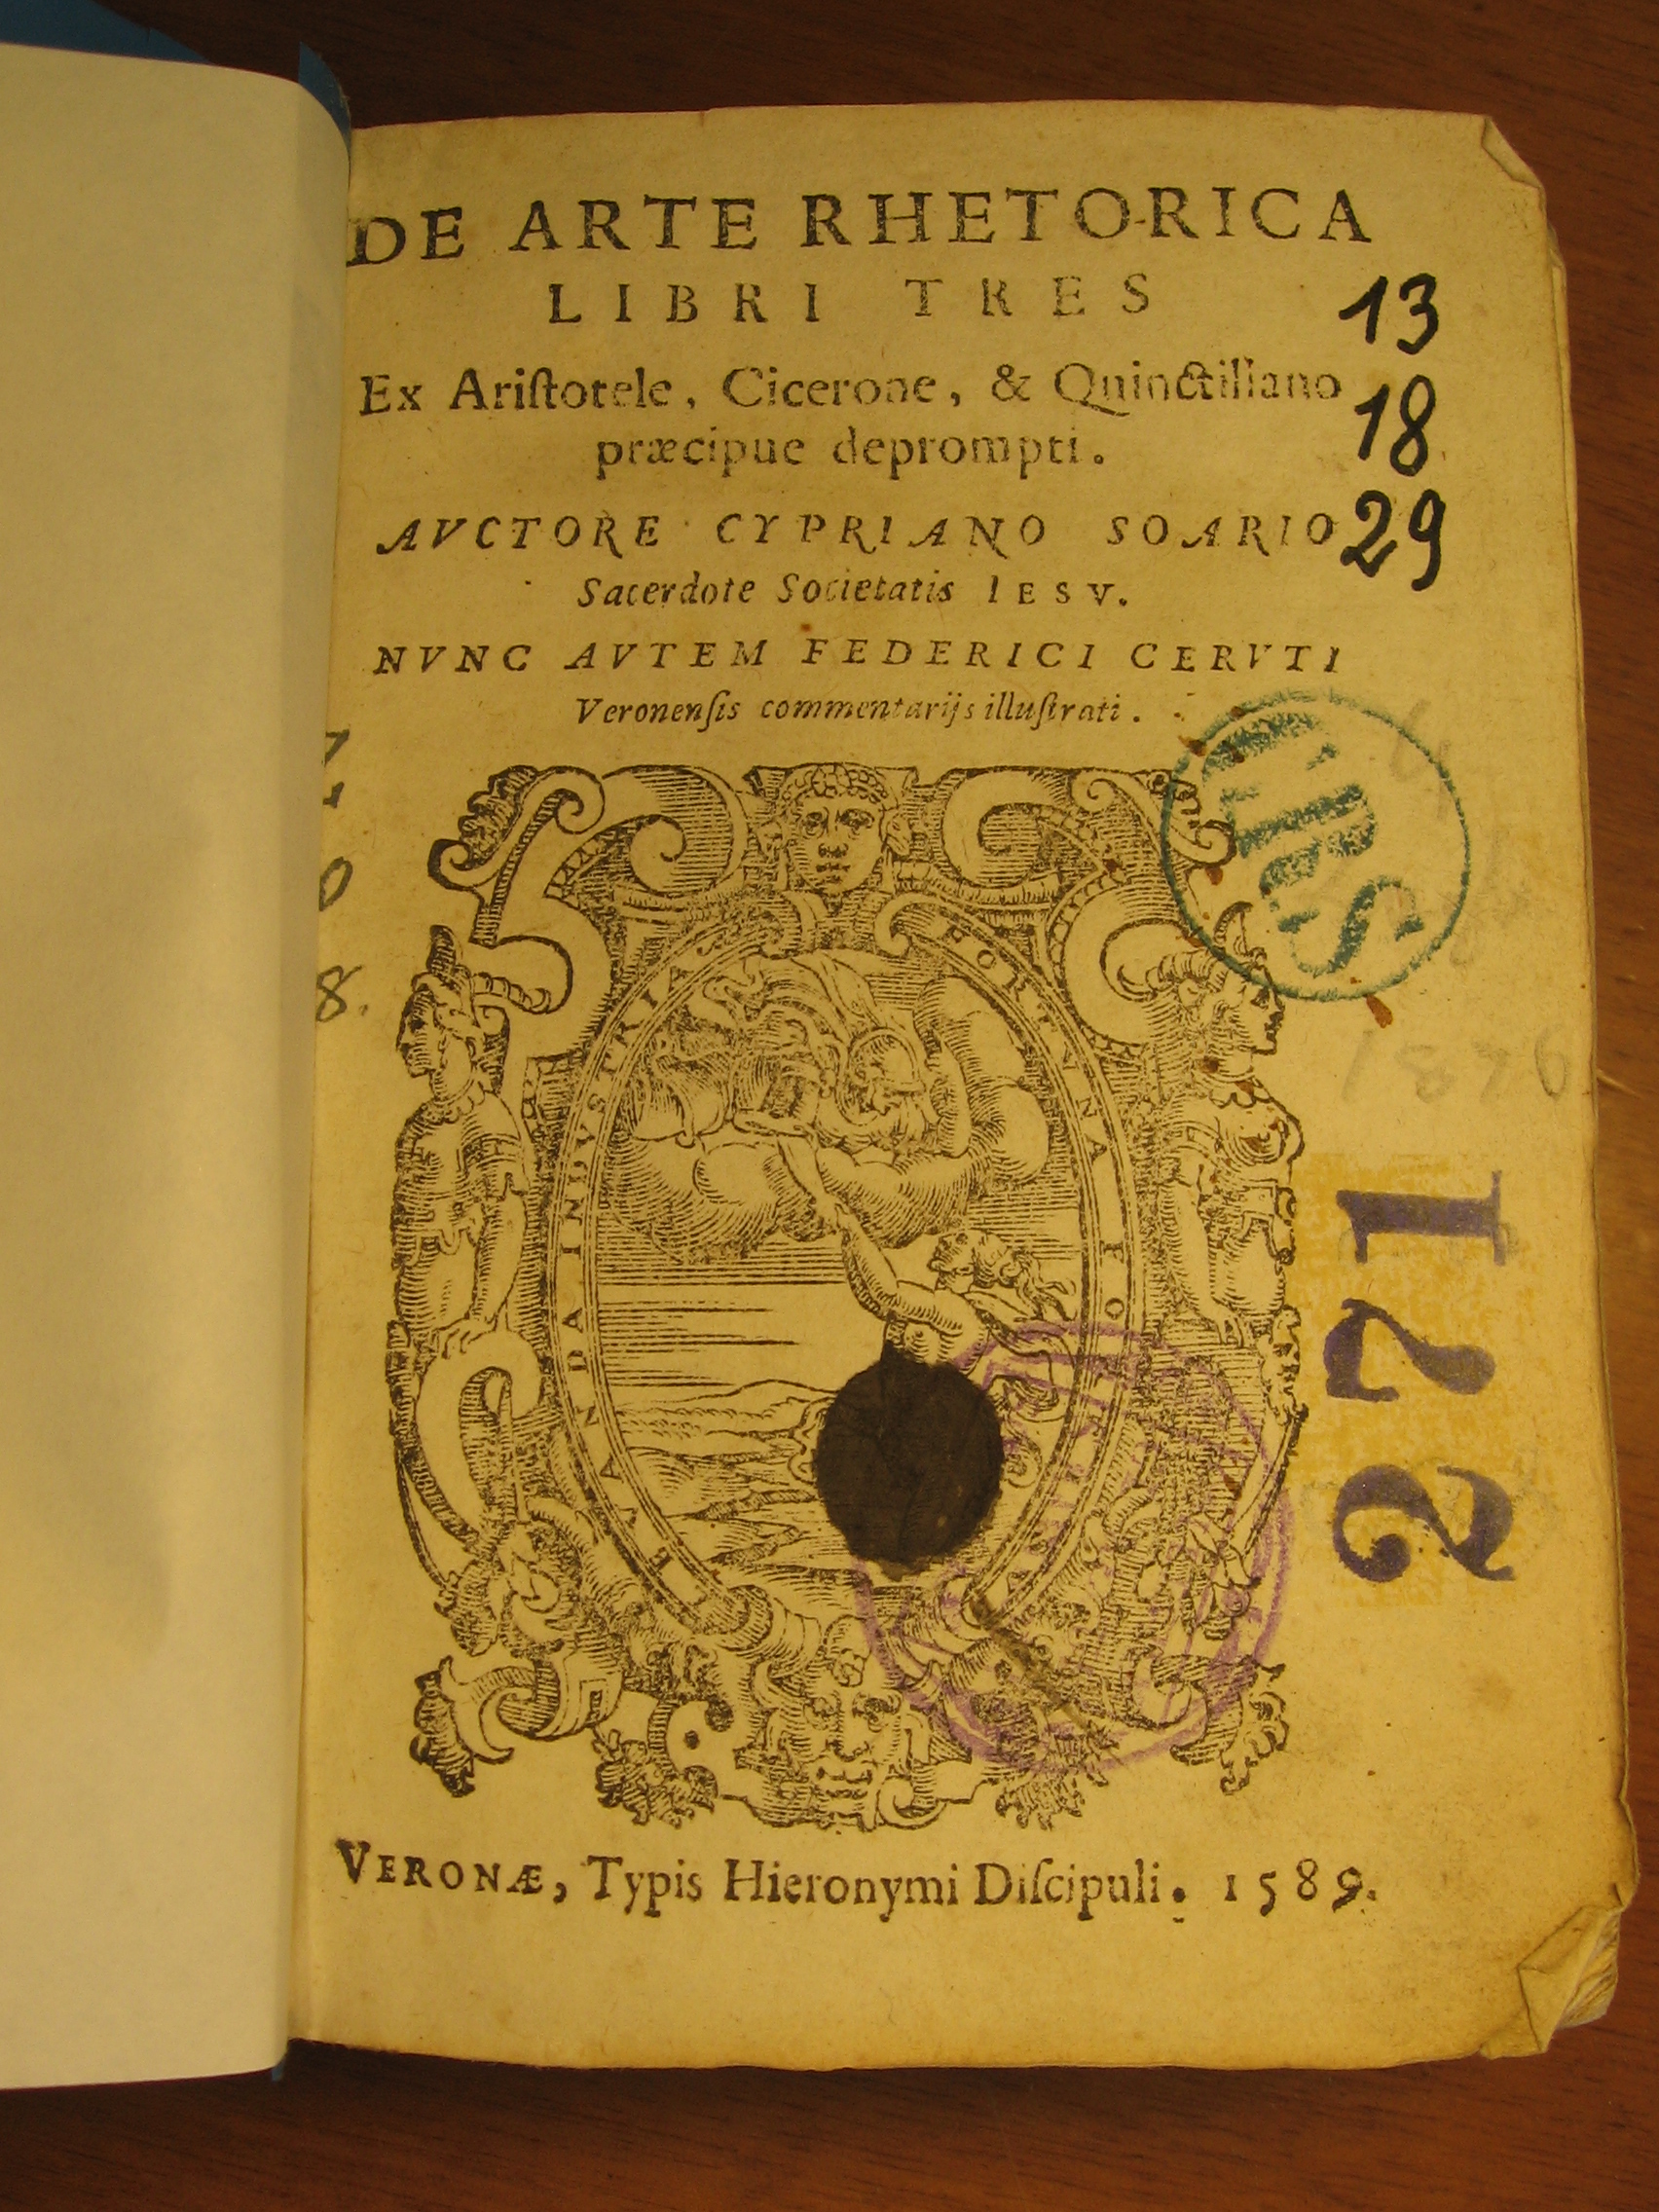 DE ARTE RHETORICA
LIBRI TRES
Ex Ariſtotele, Cicerone, & Quinctiliano
præcipue deprompti.
AVCTORE CYPRIANO SOARIO
Sacerdote Societatis IESV.
NVNC AVTEM FEDERICI CERVTI
Veronenſis commentarijs illuſtrati.
13
18
29
0
8.
271
INDVSTRIA
FORTVNA
VERONÆ, Typis Hieronymi Diſcipuli. 1589.